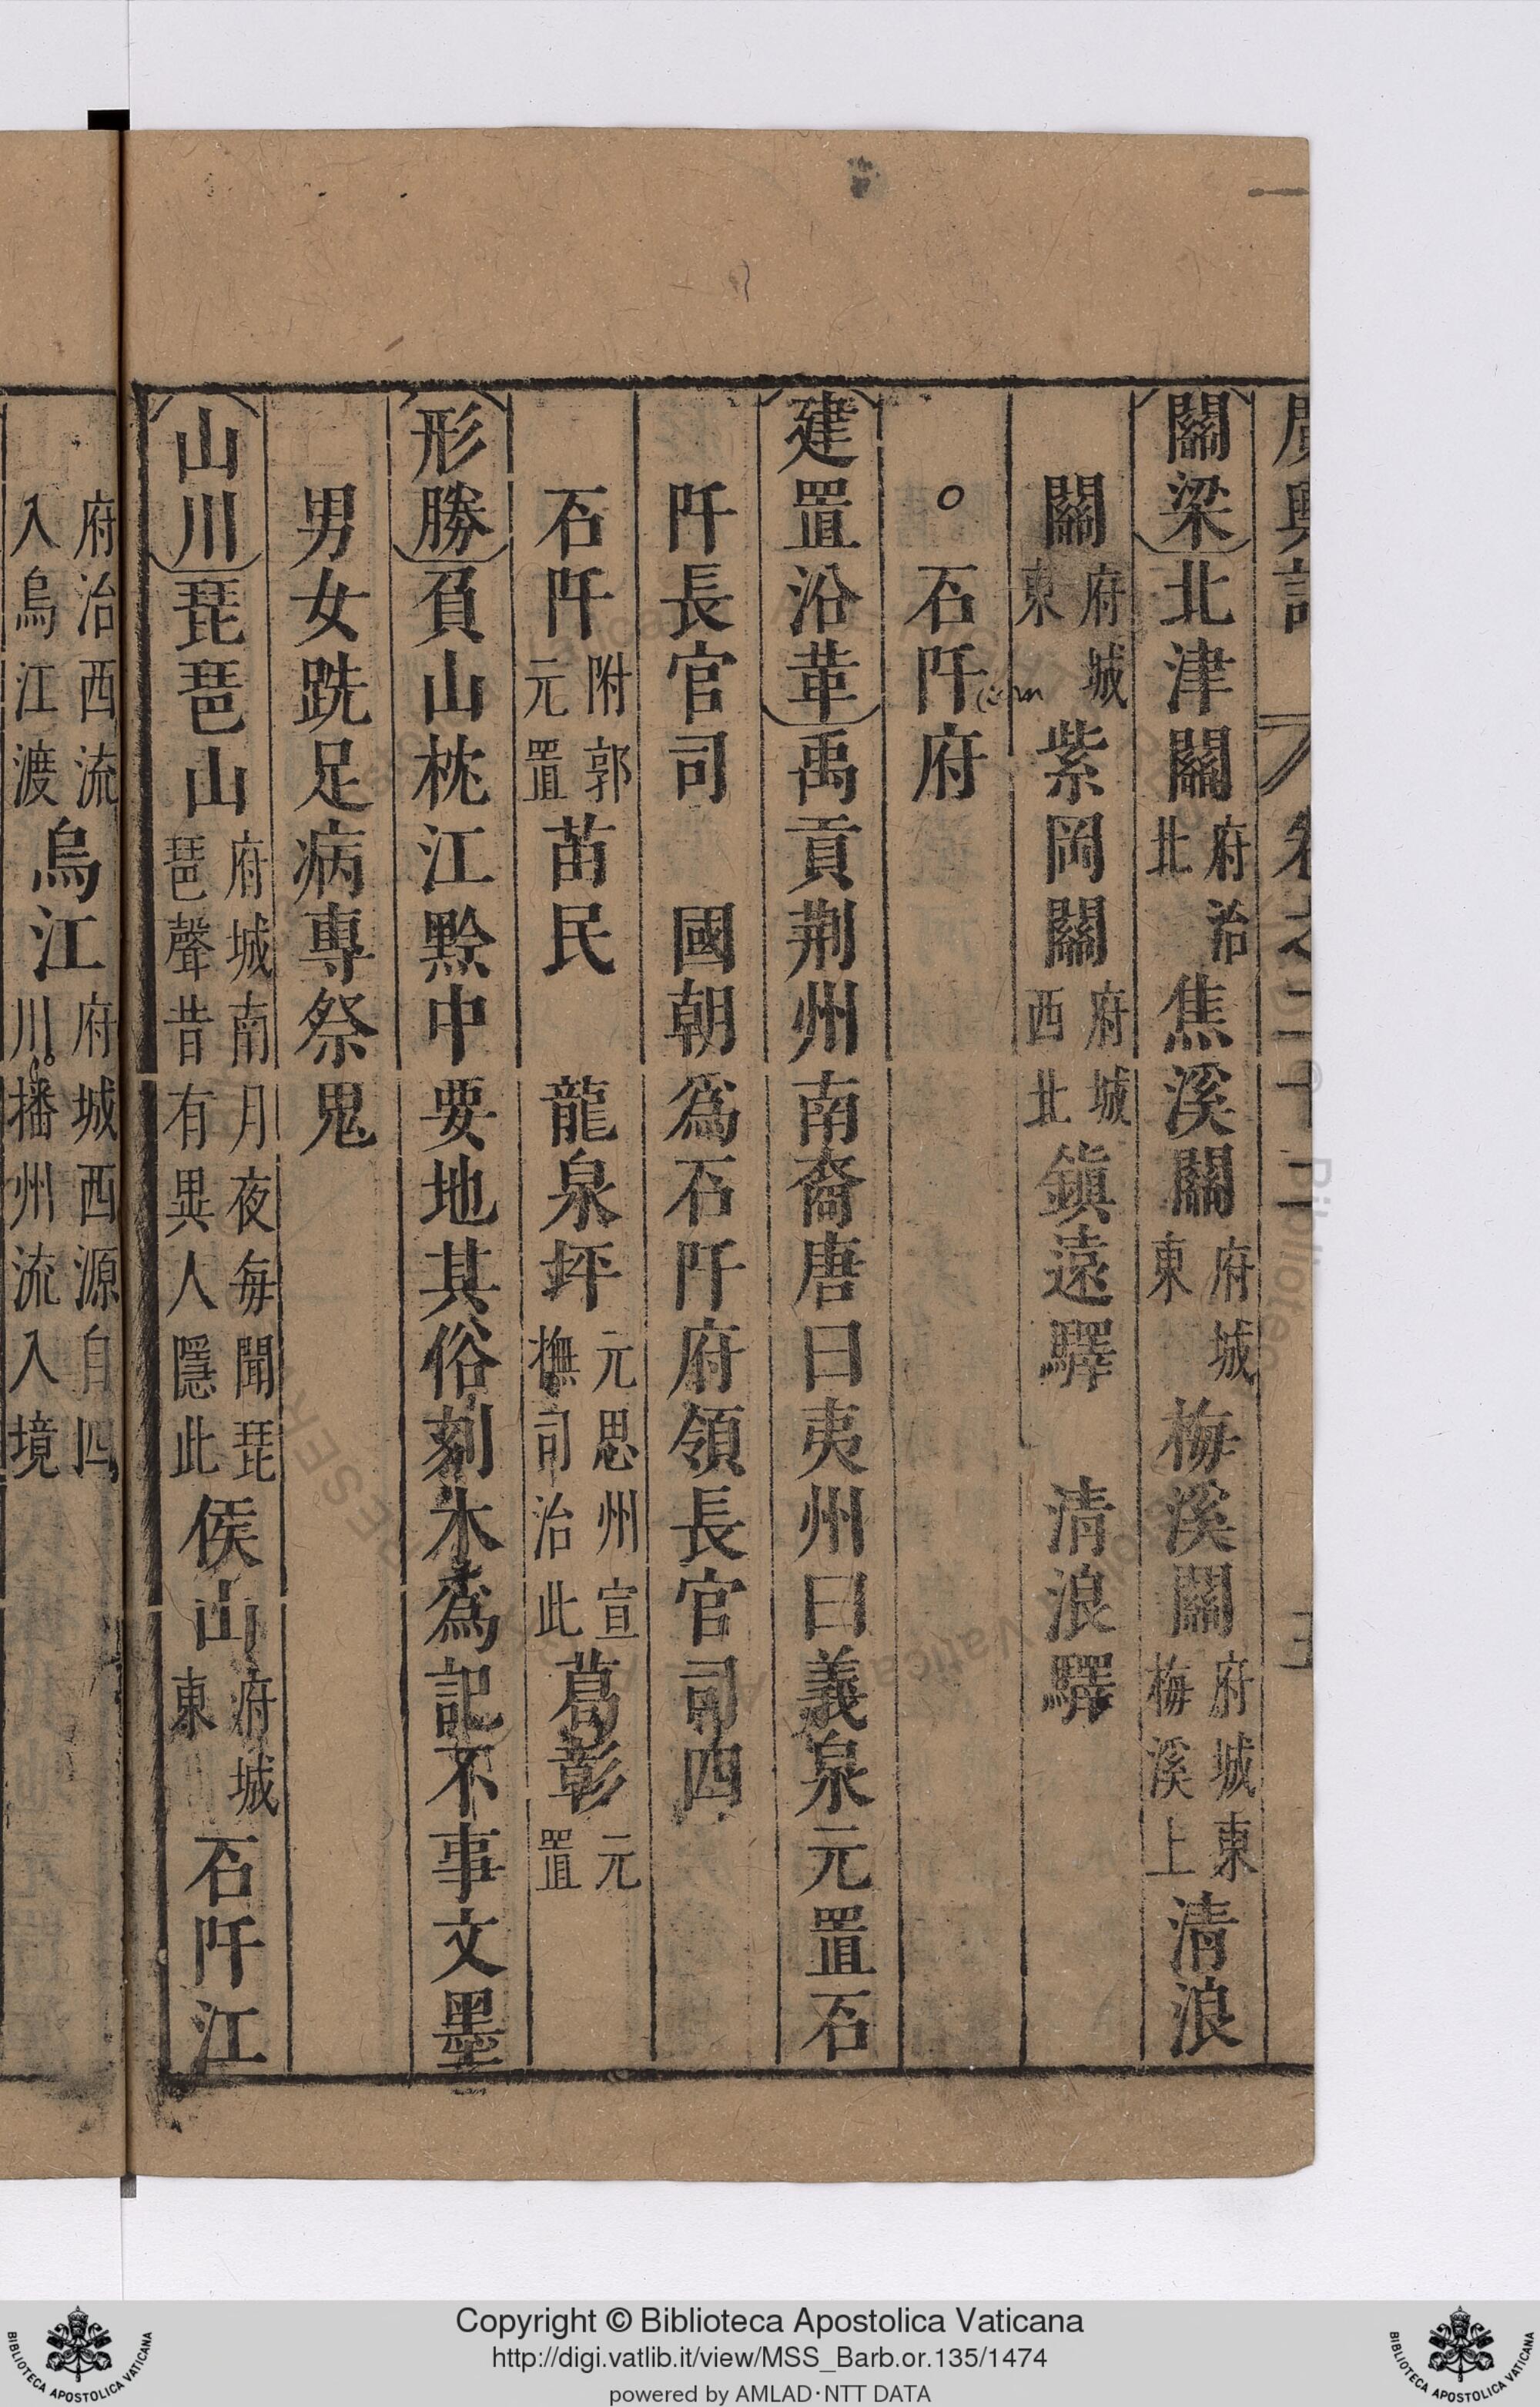 廣輿記 卷之二十二 五
關梁 北津關 府治北 焦溪關 府城東 梅溪關 府城東梅溪上 清浪
關 府城東 紫岡關 府城西北 鎮遠驛 清浪驛
○石阡府
建置沿革 禹貢荆州南裔唐曰夷州曰義泉元置石
阡長官司 國朝為石阡府領長官司四
石阡 附郭元置 苗民 龍泉坪 元思州宣撫司治此 葛彰 元置
形勝 負山枕江黔中要地其俗刻木為記不事文墨
男女跣足病專祭鬼
山川 琵琶山 府城南月夜每聞琵琶聲昔有異人隱此 侯山 府城東 石阡江
府治西流入烏江渡 烏江 府城西源自四川播州流入境
Copyright © Biblioteca Apostolica Vaticana
http://digi.vatlib.it/view/MSS_Barb.or.135/1474
powered by AMLAD·NTT DATA
BIBLIOTECA APOSTOLICA VATICANA
BIBLIOTECA APOSTOLICA VATICANA